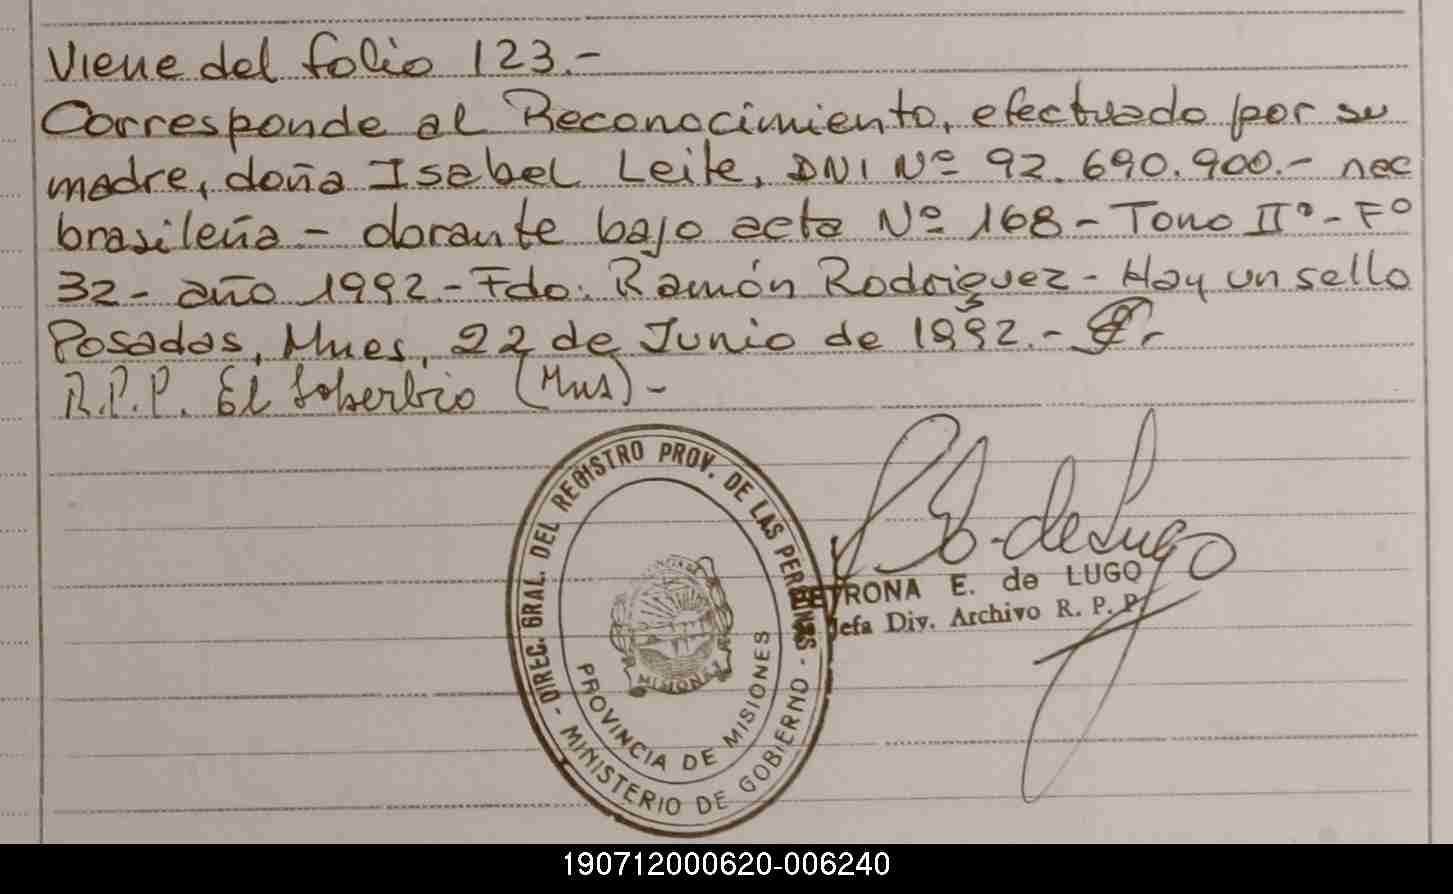 Viene del folio 123.-
Corresponde al Reconocimiento, efectuado por su
madre, doña Isabel Leite, DNI Nº 92.690.900.- nac
brasileña - obrante bajo acta Nº 168 - Tomo IIº - Fº
32 - año 1992.- Fdo: Ramón Rodriguez - Hay un sello
Posadas, Mnes, 22 de Junio de 1992.-
R.P.P. El Soberbio (Mns) -
DIREC. GRAL. DEL REGISTRO PROV. DE LAS PERSONAS - MINISTERIO DE GOBIERNO -
PROVINCIA DE MISIONES
MISIONES
P. E. de Lugo
PETRONA E. de LUGO
Jefa Div. Archivo R. P. P.
190712000620-006240